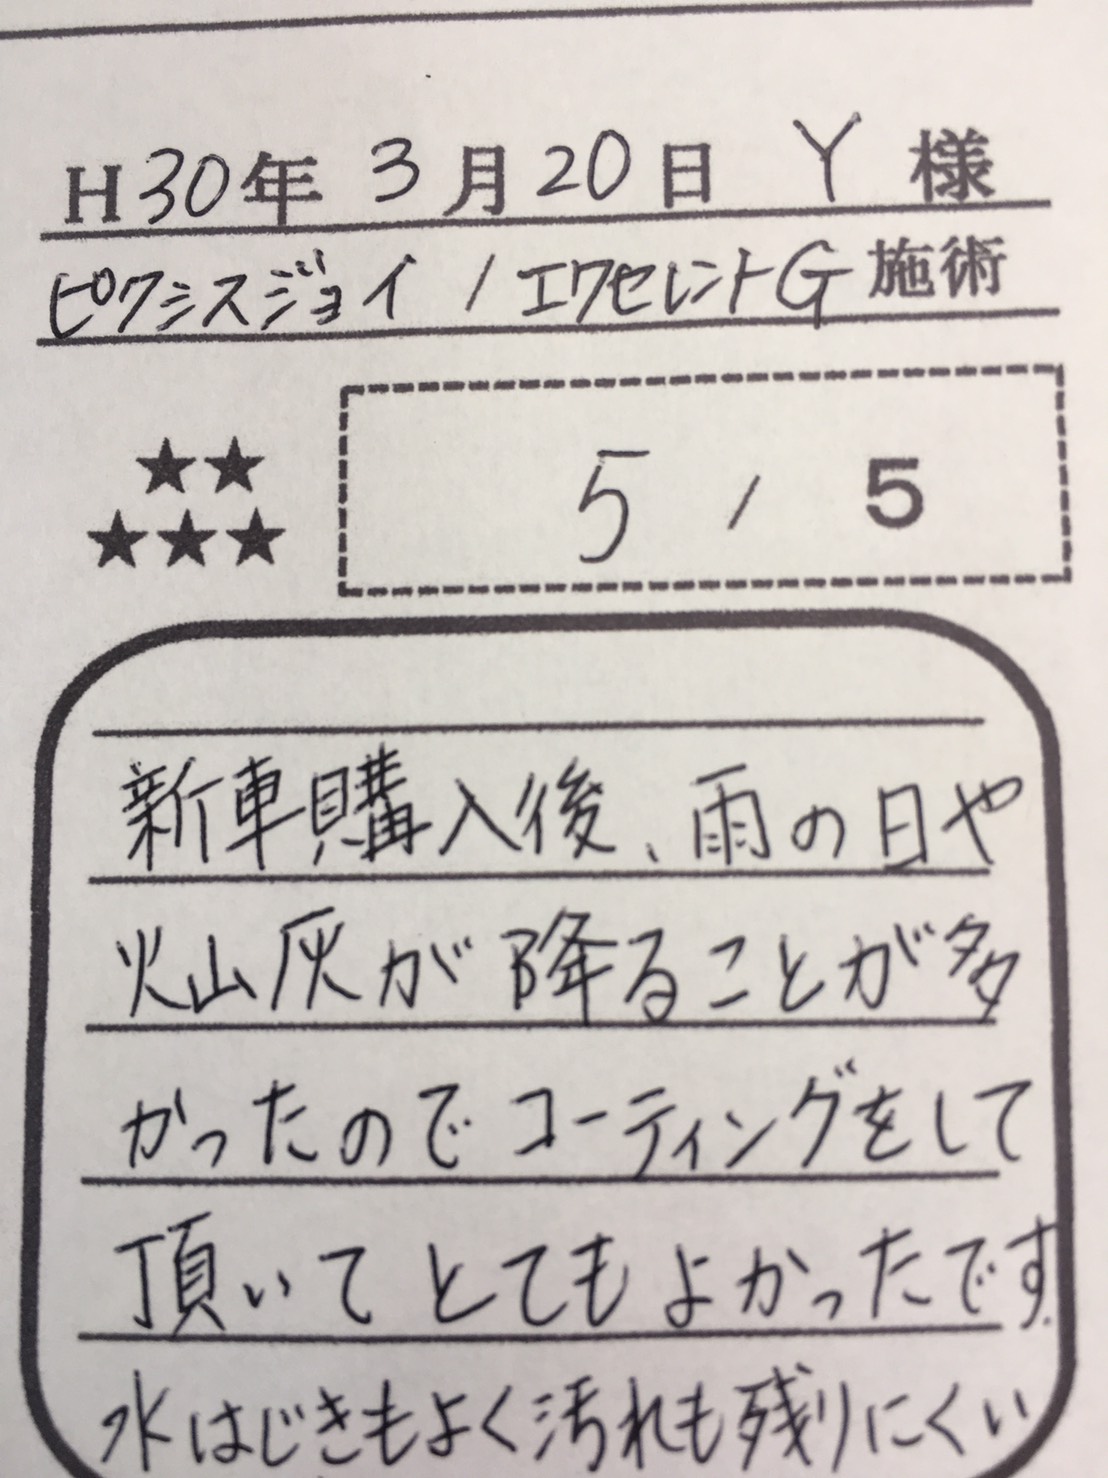 H30年 3月20日 Y 様
ピクシスジョイ / エクセレントG 施術
★★
★★★
5 / 5
新車購入後、雨の日や
火山灰が降ることが多
かったのでコーティングをして
頂いてとてもよかったです.
水はじきもよく汚れも残りにくい